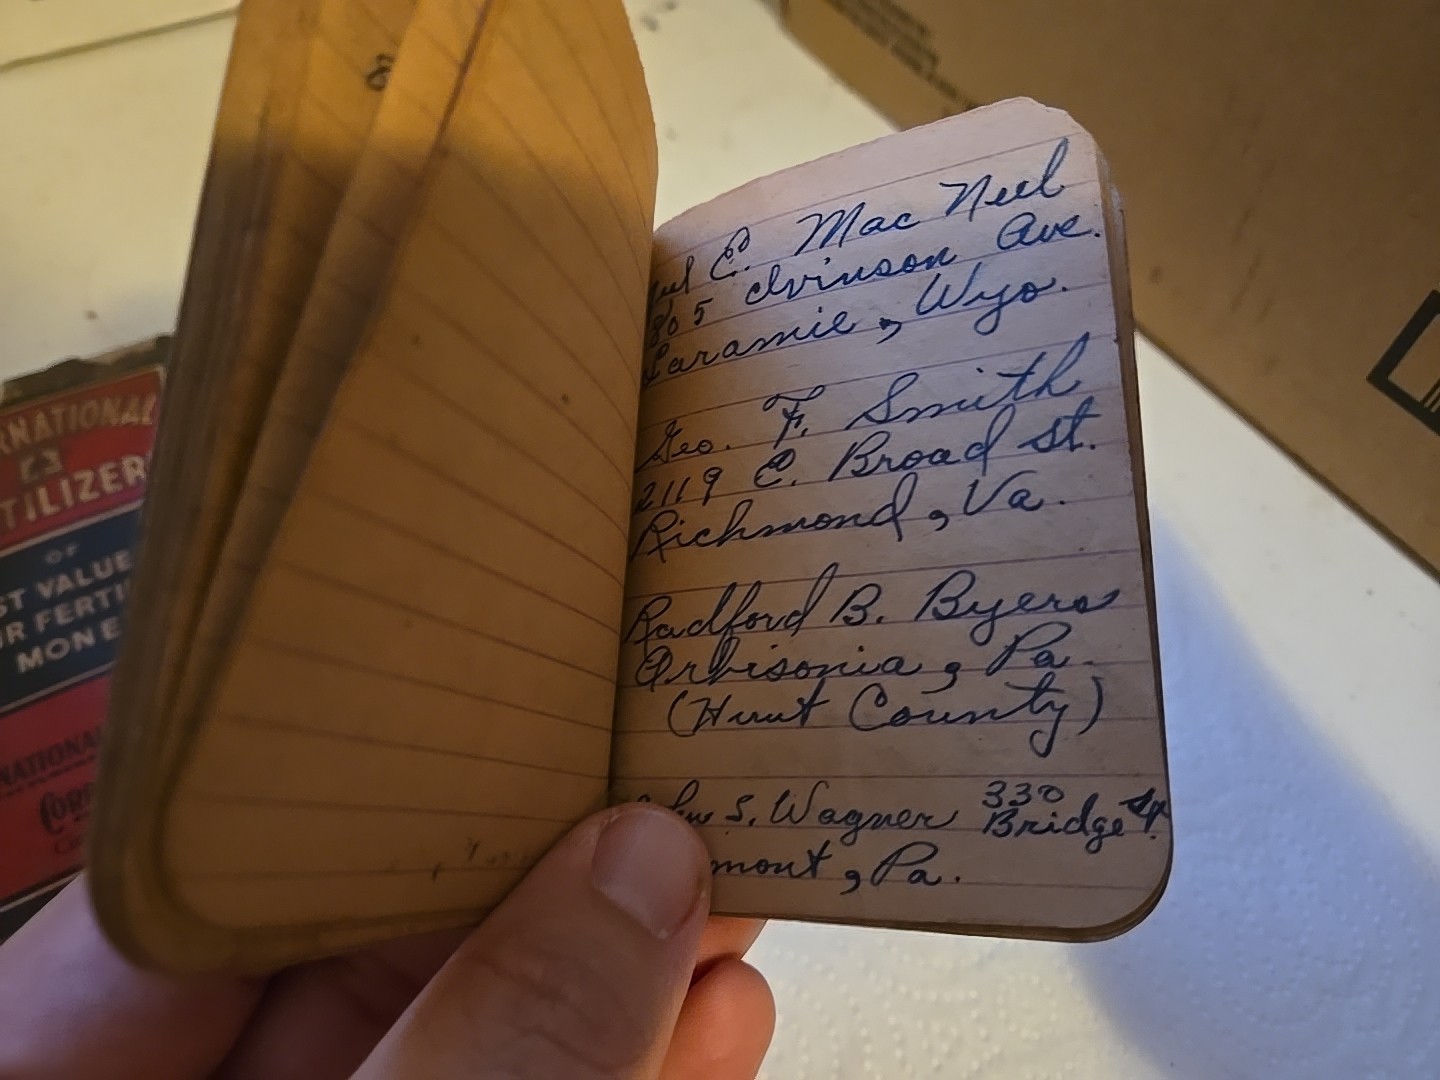 E. Mac Neel
805 Ivinson Ave.
Laramie, Wyo.
Geo. F. Smith
2119 E. Broad St.
Richmond, Va.
Radford B. Byers
Orbisonia, Pa.
(Hunt County)
S. Wagner 330
Bridge St.
mont, Pa.
RNATIONAL
TILIZER
OF
ST VALUE
R FERTI
MONE
NATIONAL